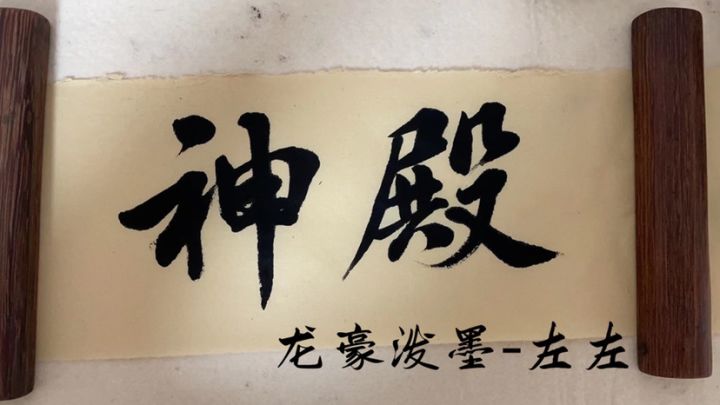 神殿
龙豪泼墨-左左